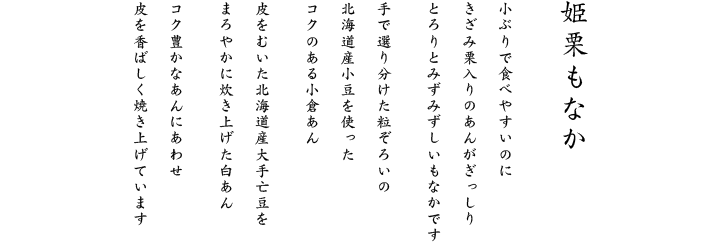 姫栗もなか
小ぶりで食べやすいのに
きざみ栗入りのあんがぎっしり
とろりとみずみずしいもなかです
手で選り分けた粒ぞろいの
北海道産小豆を使った
コクのある小倉あん
皮をむいた北海道産大手亡豆を
まろやかに炊き上げた白あん
コク豊かなあんにあわせ
皮を香ばしく焼き上げています